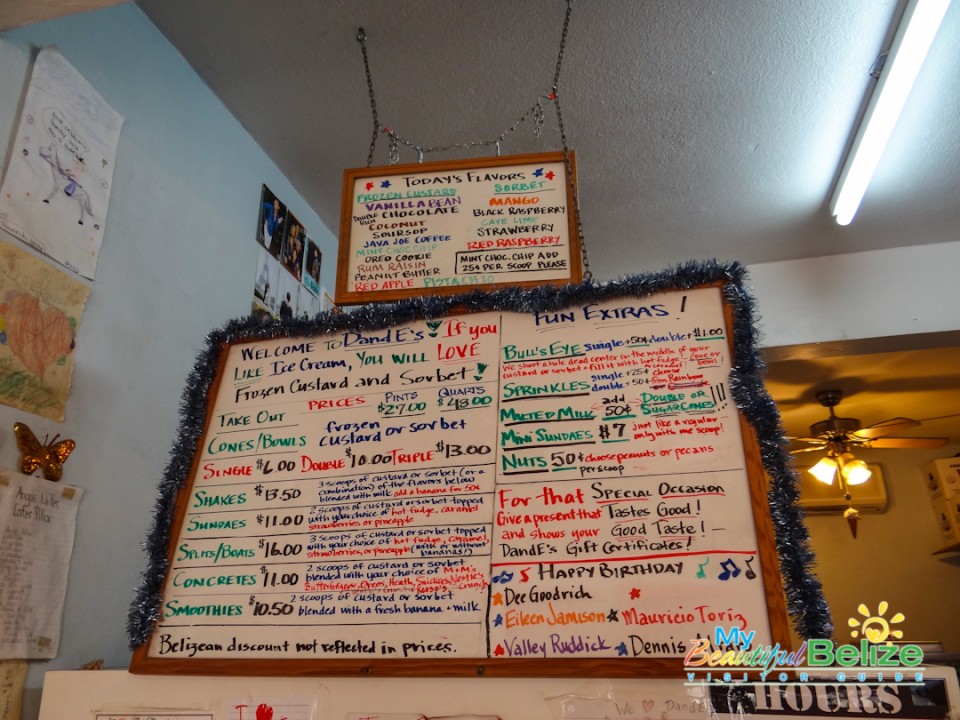 TODAY'S FLAVORS
FROZEN CUSTARD
VANILLA BEAN
DOUBLE RICH CHOCOLATE
COCONUT
SOURSOP
JAVA JOE COFFEE
MINT CHOC. CHIP
OREO COOKIE
RUM RAISIN
PEANUT BUTTER
RED APPLE PISTACHIO
SORBET
MANGO
BLACK RASPBERRY
STRAWBERRY
RED RASPBERRY
MINT CHOC. CHIP ADD
25¢ PER SCOOP PLEASE
WELCOME TO DandE's! If you
LIKE Ice Cream, YOU WILL LOVE
Frozen Custard and Sorbet!
TAKE OUT PRICES PINTS $27.00 QUARTS $48.00
CONES/BOWLS frozen custard or sorbet
SINGLE $6.00 DOUBLE $10.00 TRIPLE $13.00
SHAKES $13.50 3 scoops of custard or sorbet (or a
combination) of the flavors below
blended with milk add a banana for 50¢
SUNDAES $11.00 2 scoops of custard or sorbet topped
with your choice of hot fudge, caramel
strawberries or pineapple
SPLITS/BOATS $16.00 3 scoops of custard or sorbet topped
with your choice of hot fudge, caramel,
strawberries, or pineapple (with or without
bananas!)
CONCRETES $11.00 2 scoops of custard or sorbet
blended with your choice of M+M's
Butterfingers, Oreos, Heath, Snickers, Nestle's
Crunch
SMOOTHIES $10.50 2 scoops of custard or sorbet
blended with a fresh banana + milk
Belizean discount not reflected in prices.
FUN EXTRAS!
BULL'S EYE single +50¢ double +$1.00
We shoot a hole dead center in the middle of your
custard or sorbet + fill it with hot fudge
SPRINKLES single +25¢
double +50¢ choose Rainbow
MALTED MILK add 50¢ DOUBLE OR
SUGAR CONES!!!
MINI SUNDAES $7 just like a regular
only with one scoop!
NUTS 50¢ choose peanuts or pecans
per scoop
For that SPECIAL OCCASION
Give a present that Tastes Good!
and shows your Good Taste!
DandE's Gift Certificates!
HAPPY BIRTHDAY
Dee Goodrich
Eileen Jamison Mauricio Toriz
Valley Ruddick Dennis
My
Beautiful Belize
VISITOR GUIDE
HOURS
We